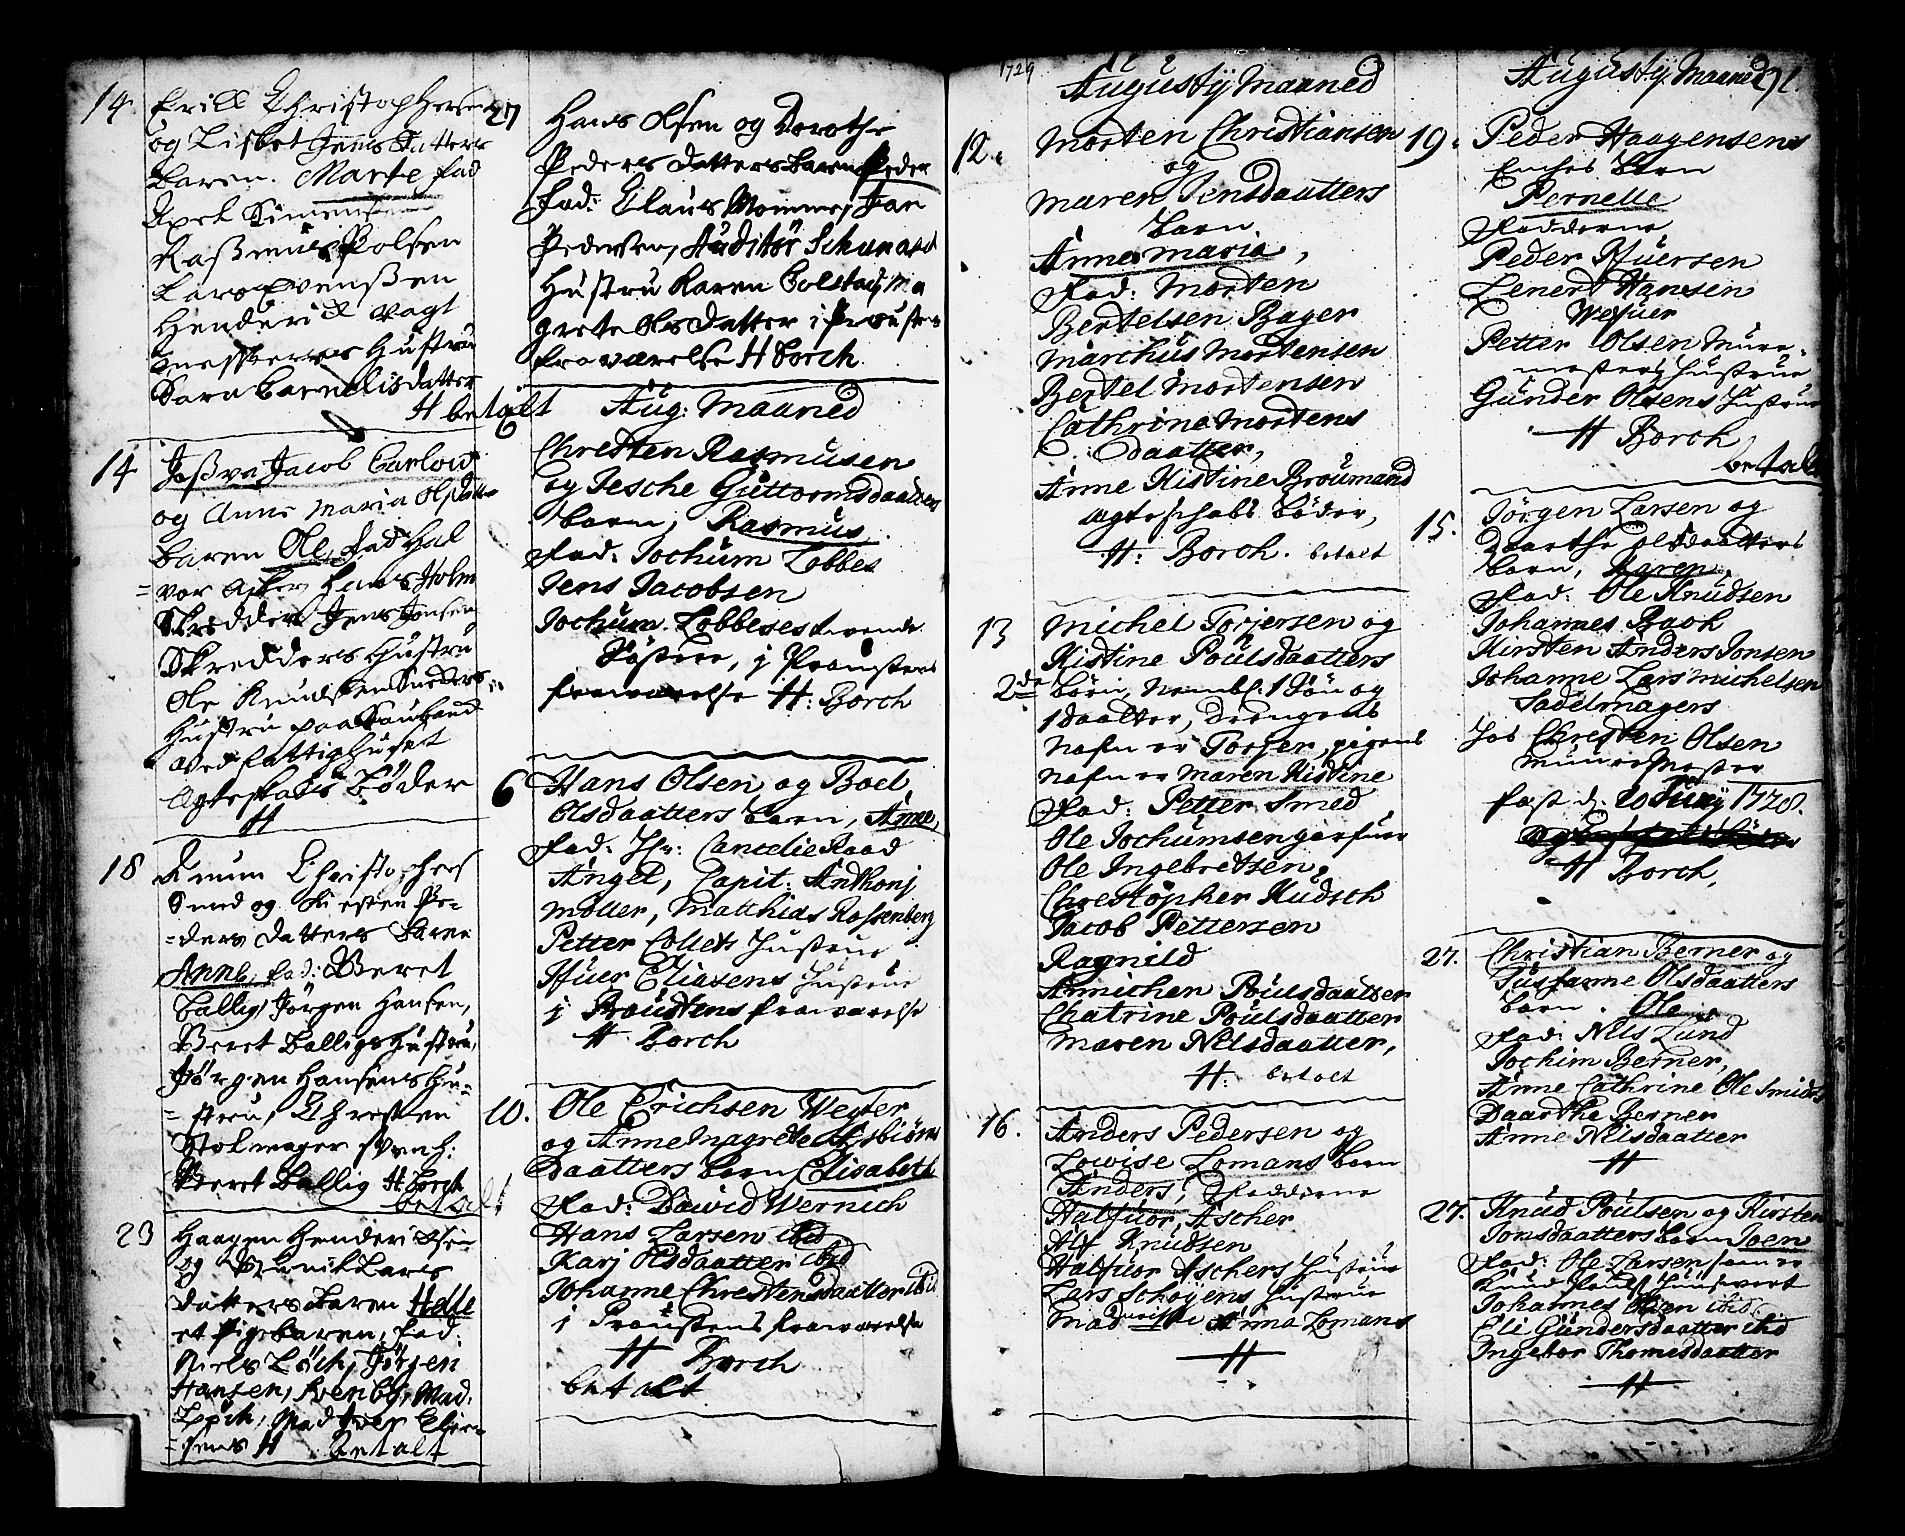 14. Erill Christophersen
og Lisbet Jens datters
Baren. Marte fad
Axel Simensen
Rasmus Polsen
Lars Evensßen
Henderich Vagt
mesters Hustrue
Sara Cornelisdatter
H betalt
14 Jacob Carlow
og Anne Maria Olsdatter
Baren Ole, fad Hal
=vor Asker, Hans Holm
Skredder, Jens Jensen
Skredders Hustru
Ole Knudsen
Hustru paa
ved fattighuset
Ægteskabs Bøder
H
18 Knud Christophers
Smed og Kiersten Pe=
=ders datters Baren
Anne, fad: Beret
Ballig, Jørgen Hansen,
Beret Balligs Hustru,
Jørgen Hansens Hu=
=stru, Christen
Stolmager
Beret Ballig H Borch
betalt
23 Haagen Hendrichsen
og Lars
datters Baren Helle
et Pigebaren, fad:
Niels Løch, Jørgen
Hansen, Svenby, Mad:
Løch, Mad Iver Elia=
=sens H Betalt
27 Hans Olsen og Dorothe
Peders datters Baren Peder
fad: Claus Mommes, Jan
Pedersen, Auditør Schunard
Hustru Karen Colstad, Ma
grete Ols datter i Proustens
fraværelse H Borch
Aug: Maaned
6 Chresten Rasmusen
og Jesche Guttormsdaatters
barn, Rasmus,
Fad: Jochum Lobbes
Jens Jacobsen
Jochum Lobbeses tienende
Søstere, j Proustens
fraværelse H: Borch
6 Hans Olsen og Boel
Olsdaatters barn, Anne,
Fad: Hr: Cancelie Raad
Angel, Capit: Anthonj
Møller, Matthias Rossenberg
Petter Collets Hustrue
Ifuer Eliasens Hustrue
j Proustens fraværelse
H Borch
10. Ole Erichsen Wegter
og Anne Magrete Asbiørns
Daatters barn Elisabeth
Fad: Dawid Wernich
Hans Larsen ibid
Karj Olsdaatter ibid
Johanne Chrestensdaatter ibid
j Proustens fraværelse
H Borch
betalt
1729
Augustij Maaned
12. Morten Christiansen
og
Maren Jensdaatters
barn
Anne Maria,
Fad: Morten
Bertelsen Bager
Marchus Mortensen
Bertel Mortensen
Cathrine Mortens
Daatter,
Anne Kistine Broumand
ægteschabs bøder,
H: Borch. betalt
13 Michel Torjersen og
Kistine Poulsdaatters
2de børn, Nembl: 1 Søn og
1 daatter, drengens
Nafn er Torjer, pigens
Nafn er Maren Kistine
Fad: Petter Smed
Ole Jochumsen garfuer
Ole Ingebretsen,
Chrestopher Kudsch
Jacob Pettersen
Ragnild
Annichen Poulsdaatter
Chatrine Poulsdaatter
Maren Nelsdaatter,
H: betalt
16. Anders Pedersen og
Lowise Lomans barn
Anders, Fadderne
Halfuor Ascher
Alf Knudsen
Halfuor Aschers Hustrue
Lars Schøyens Hustrue
Anna Lomans
H
Augustij Maaned 71.
19. Peder Haagensens
Enches barn
Pernelle
Fadderne
Peder Ifuersen
Lenert Hansen
Wefuer
Petter Olsen Mure=
mesters Hustrue
Gunder Olsens Hustrue
H Borch,
betalt
15. Jørgen Larsen og
Daarthe Olsdaatters
barn, Karen,
Fad: Ole Knudsen
Johannes Bach
Kirsten Anders Jonsen
Johanne Lars Michelsen
Sadelmagers
Hos Chresten Olsen
Mure Mester
fæst d. 20 Junij 1728.
H Borch,
27. Christian Berner og
Sussanne Olsdaatters
barn. Ole
Fad: Nils Lund
Jochim Berner,
Anne Cathrine Ole Smids
Daarthe Berner
Anne Nilsdaatter
H
27. Knud Poulsen og Kirsten
Jonsdaatters barn Joen
Fad: Ole Larsen som er
Knud Pouls Huusvert
Johannes Olsen ibid:
Eli Gundersdaatter ibid
Ingebor Thomesdaatter
H